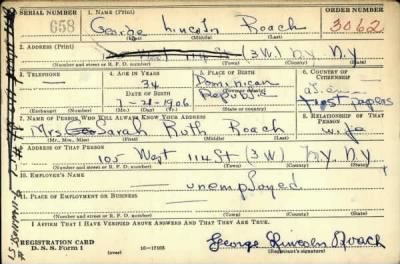 SERIAL NUMBER
658
1. NAME (Print)
George Lincoln Roach
(First) (Middle) (Last)
ORDER NUMBER
3062
2. ADDRESS (Print)
114 St (3W) N.Y. N.Y
(Number and street or R. F. D. number) (Town) (County) (State)
3. TELEPHONE
—
(Exchange) (Number)
4. AGE IN YEARS
34
DATE OF BIRTH
7-21-1906
(Mo.) (Day) (Yr.)
5. PLACE OF BIRTH
Dominican
Republic
(Town or county)
(State or country)
6. COUNTRY OF CITIZENSHIP
First papers
7. NAME OF PERSON WHO WILL ALWAYS KNOW YOUR ADDRESS
Mrs. Sarah Ruth Roach
(Mr., Mrs., Miss) (First) (Middle) (Last)
8. RELATIONSHIP OF THAT PERSON
wife
9. ADDRESS OF THAT PERSON
105 West 114 St (3W) N.Y. N.Y
(Number and street or R. F. D. number) (Town) (County) (State)
10. EMPLOYER'S NAME
— unemployed
11. PLACE OF EMPLOYMENT OR BUSINESS
(Number and street or R. F. D. number) (Town) (County) (State)
I AFFIRM THAT I HAVE VERIFIED ABOVE ANSWERS AND THAT THEY ARE TRUE.
REGISTRATION CARD
D. S. S. Form 1
(over)
16—17105
George Lincoln Roach
(Registrant's signature)